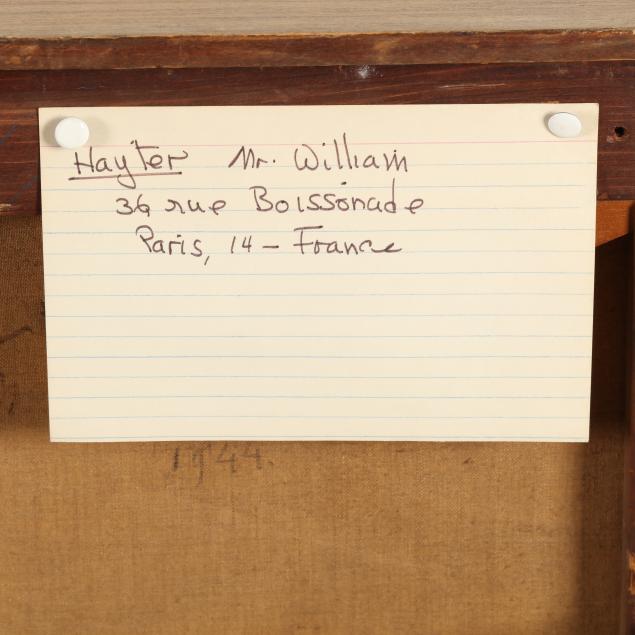 Hayter Mr. William
36 rue Boissonade
Paris, 14 - France
1944.